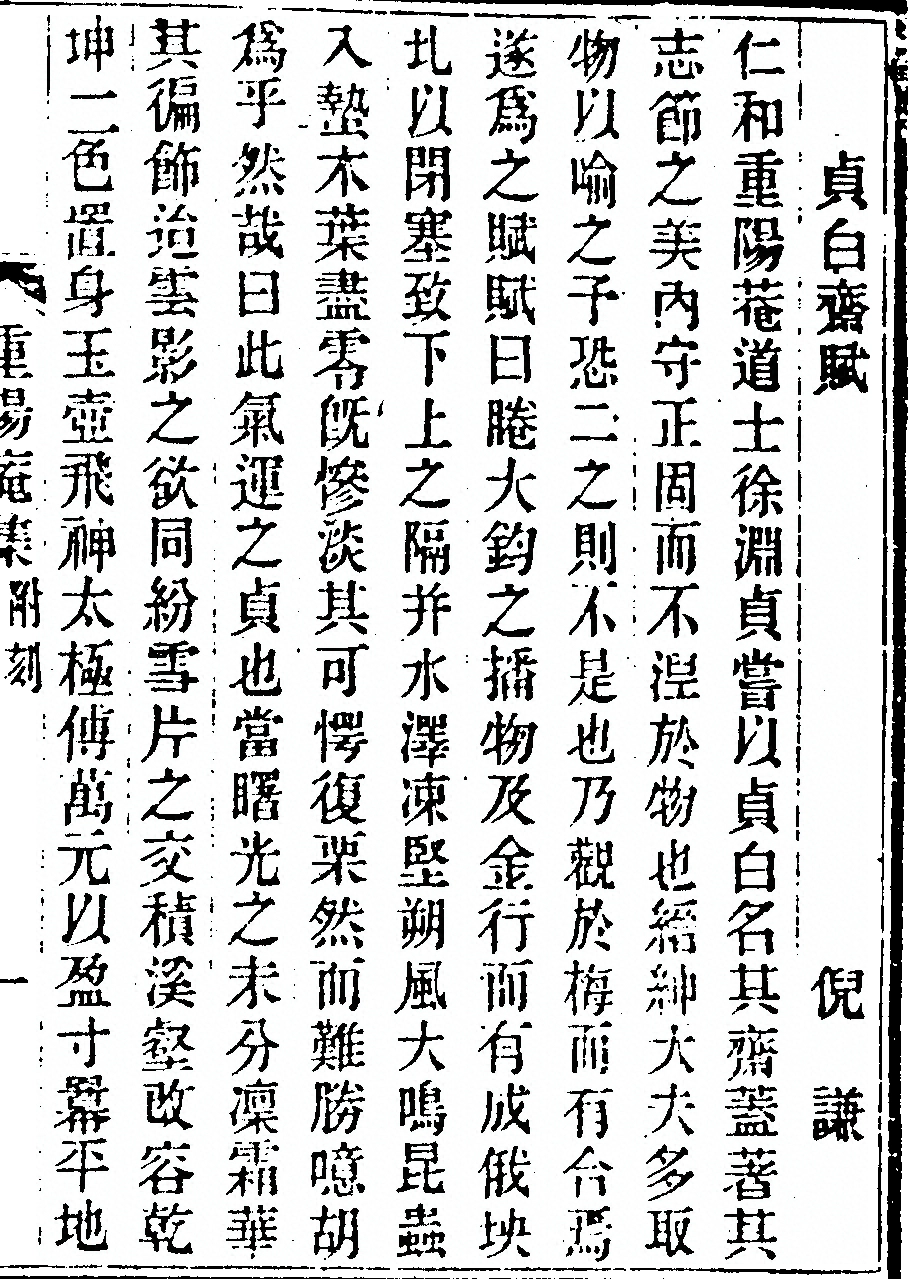 貞白齋賦 倪謙
仁和重陽菴道士徐淵貞嘗以貞白名其齋蓋著其
志節之美內守正固而不涅於物也縉紳大夫多取
物以喻之予恐二之則不是也乃觀於梅而有合焉
遂爲之賦賦曰睠大鈞之播物及金行而有成俄坱
圠以閉塞致下上之隔并水澤凍堅朔風大鳴昆蟲
入蟄木葉盡零旣慘淡其可愕復栗然而難勝噫胡
爲乎然哉曰此氣運之貞也當曙光之未分凜霜華
其徧飾迨雲影之欲同紛雪片之交積溪壑改容乾
坤一色置身玉壺飛神太極傅萬元以盈寸冪平地
重陽庵集 附刻 一